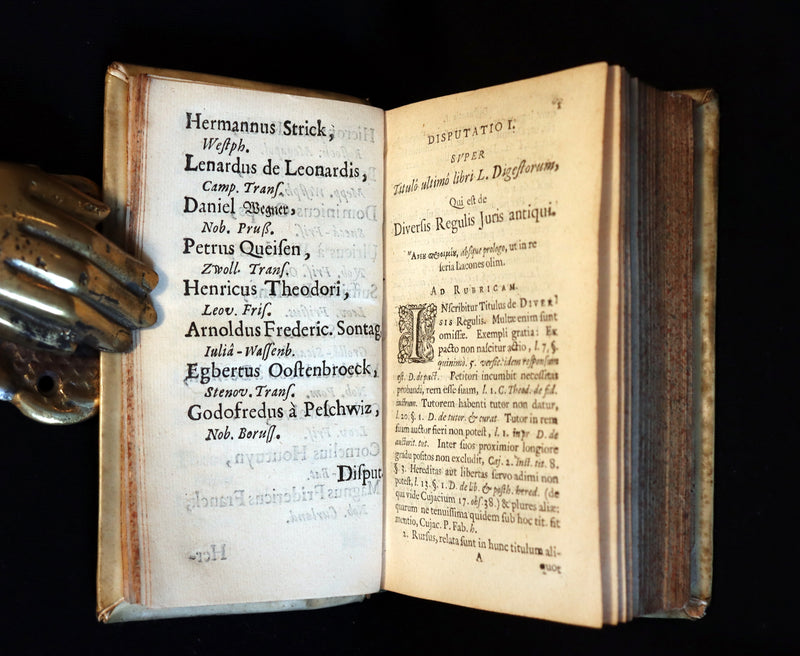 Hermannus Strick,
Westph.
Lenardus de Leonardis,
Camp. Trans.
Daniel Wegner,
Nob. Pruß.
Petrus Queisen,
Zwoll. Trans.
Henricus Theodori,
Leov. Fris.
Arnoldus Frederic. Sontag
Iuliâ-Wassenb.
Egbertus Oostenbroeck,
Stenov. Trans.
Godofredus à Peschwiz,
Nob. Boruss.
Disput.
DISPUTATIO I.
SVPER
Tituló ultimô libri L. Digestorum,
Qui est de
Diversis Regulis Juris antiqui.
absque prologo, ut in re
seria Lacones olim.
AD RUBRICAM.
INscribitur Titulus de DIVER
SIS Regulis. Multæ enim sunt
omissæ. Exempli gratia: Ex
pacto non nascitur actio, l. 7. §.
quinimò. 5. versic. idem responsum
est. D. de pact. Petitori incumbit necessitas
probandi, rem esse suam, l. 1. C. Theod. de fid.
Tutorem habenti tutor non datur,
l. 20. §. 1. D. de tutor. & curat. Tutor in rem
suam auctor fieri non potest, l. 1. inpr D. de
auctorit. tut. Inter suos proximior longiore
gradu positos non excludit, Caj. 2. Inst. tit. 8.
§ 3. Hereditas aut libertas servo adimi non
potest, l. 13. §. 1. D. de lib. & posth. hered. (de
qua vide Cujacium 17. obs. 38.) & plures aliæ:
quarum ne tenuissima quidem sub hoc tit. fit
mentio, Cujac. P. Fab. h.
2. Rursus, relata sunt in hunc titulum ali-
A
quot